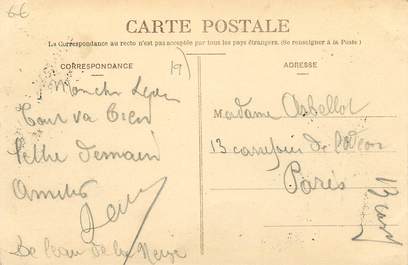 66
CARTE POSTALE
La Correspondance au recto n'est pas acceptée par tous les pays étrangers. (Se renseigner à la Poste.)
CORRESPONDANCE
ADRESSE
19)
Mon cher
Tout va bien
lettre demain
Amitiés
De l'eau de la Neige
Madame Arbellot
13 carrefour de l'odéon
Paris
13